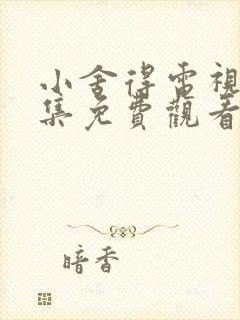 小舍得電視
集免費觀看
暗香